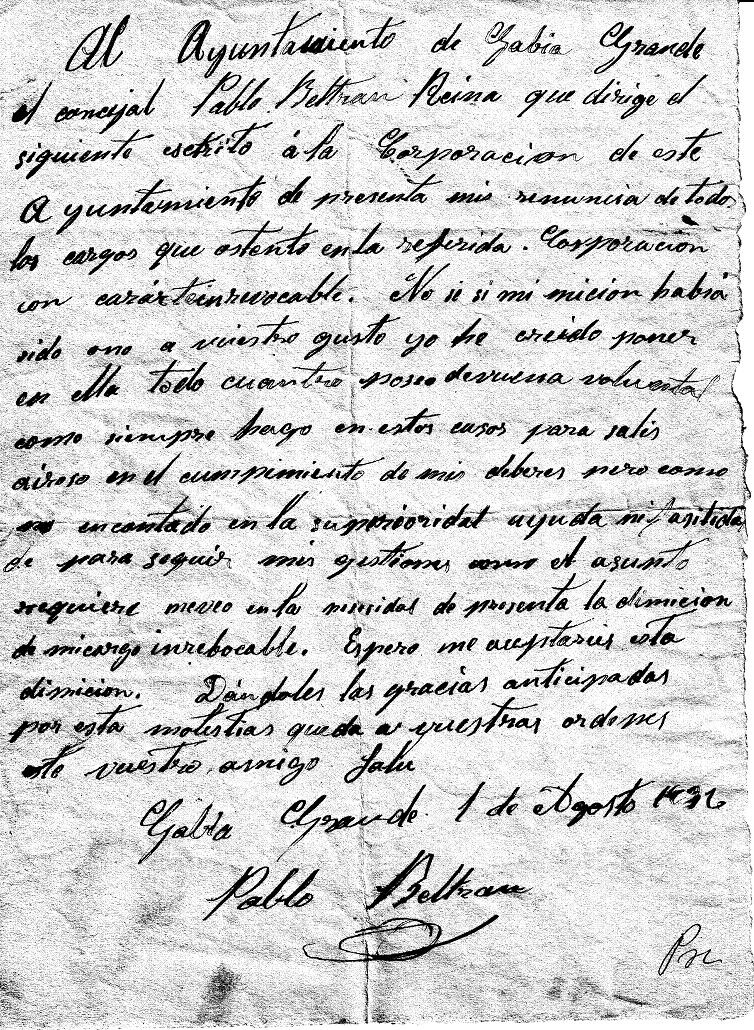 Al Ayuntamiento de Gabia Grande
el concejal Pablo Beltran Reina que dirige el
siguiente escrito á la Corporacion de este
Ayuntamiento de presenta mis renuncia de todos
los cargos que ostento en la referida. Corporación
con carárte inrevocable. No se si mi micion habrá
sido ono a vuestro gusto yo he creido poner
en ella todo cuantro poseo devuena voluental
como siempre hago en estos casos para salir
airoso en el cumpimiento de mis deberes pero como
no encontado en la superioridat ayuda ni fasilida
de para seguir mis gestiones como el asunto
requiere meveo en la nesesidas de presenta la dimicion
de micargo inrebocable. Espero me aceptareis esta
dimicion. Dándoles las gracias anticipadas
por esta molestias queda a vuestras ordenes
este vuestro amigo Salu
Gabia Grande 1 de Agosto
Pablo Beltran